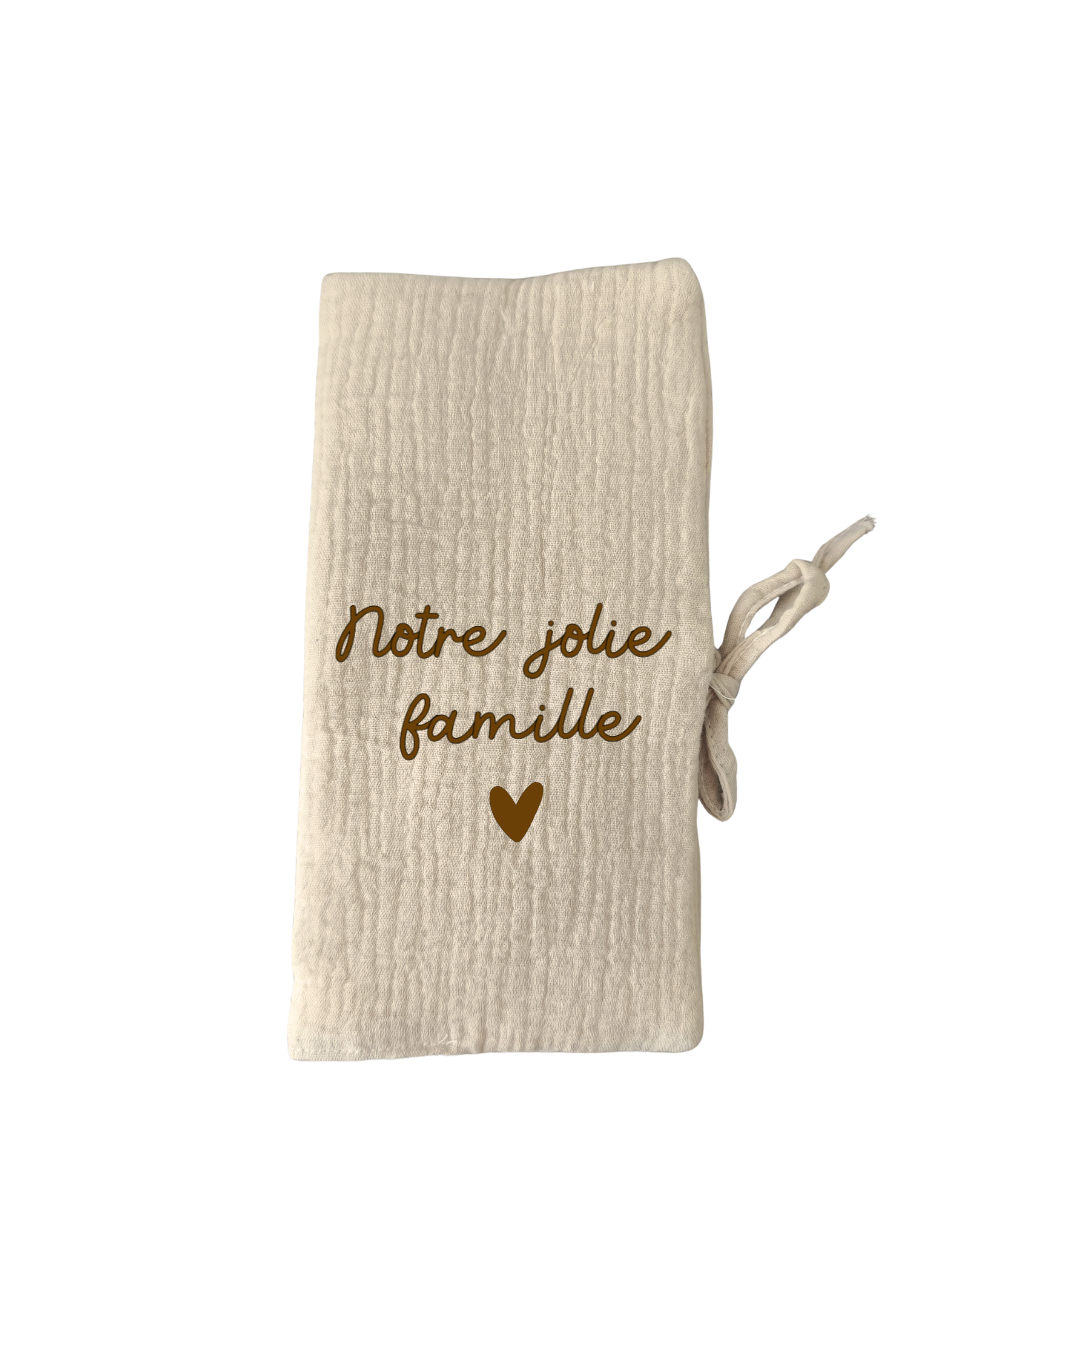 Notre jolie
famille